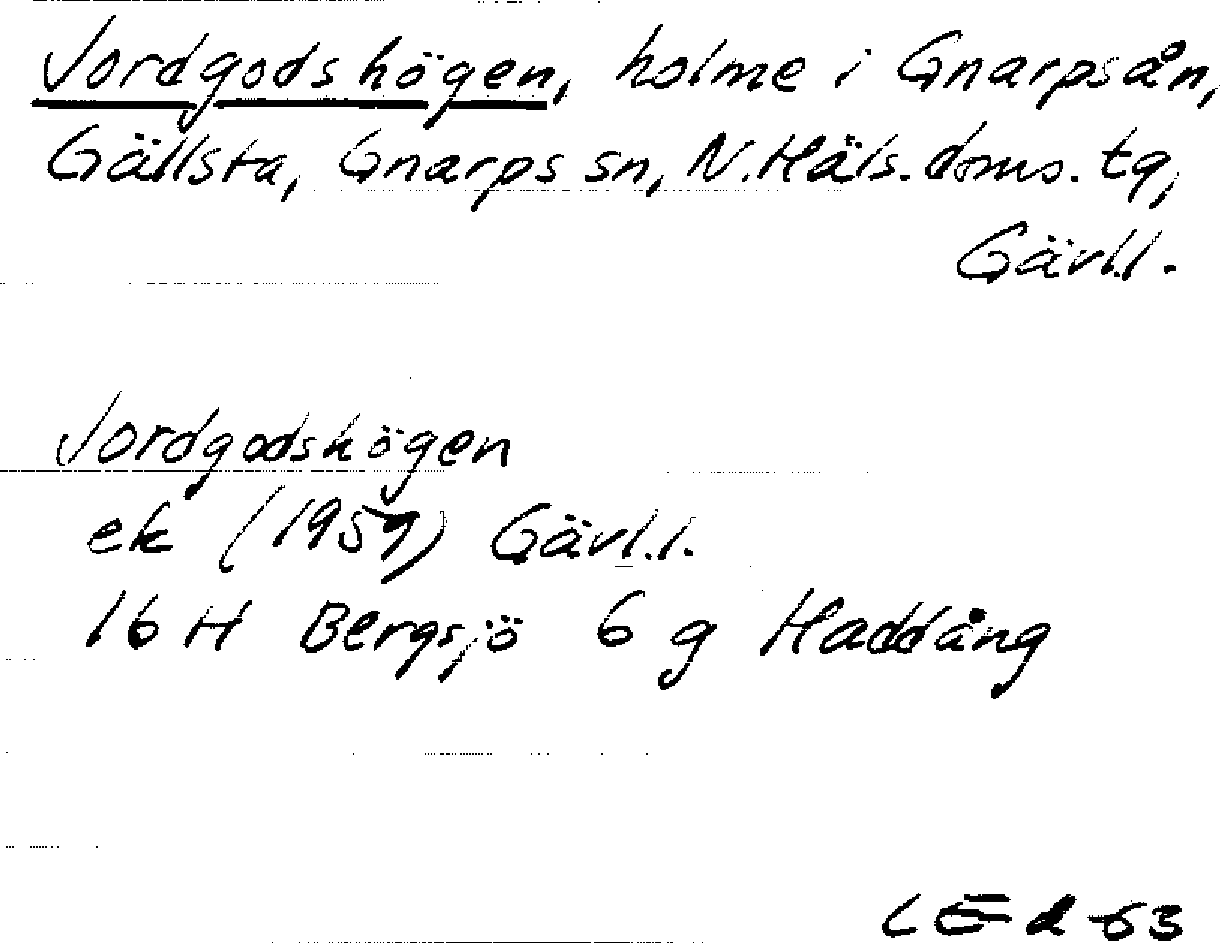 Jordgodshögen, holme i Gnarpsån,
Gällsta, Gnarps sn, N.Häls. doms. tg,
Gävl.l.
Jordgodshögen
ek (1959) Gävl.l.
16 H Bergsjö 6 g Haddång
63